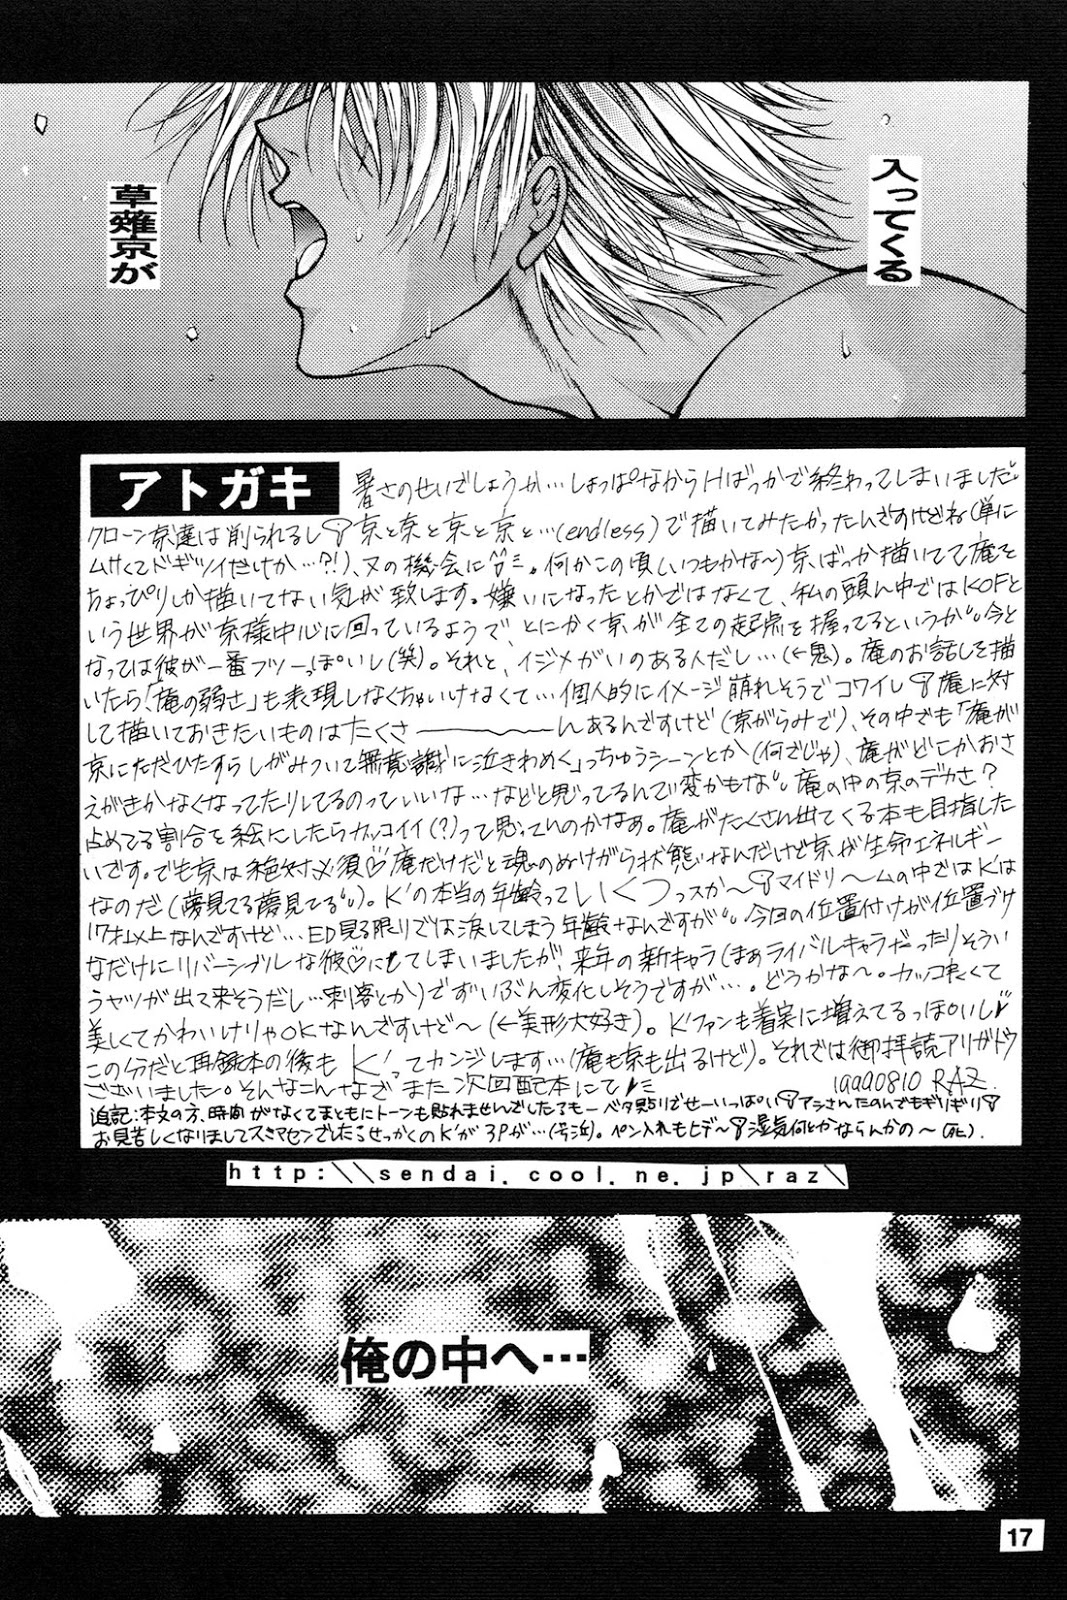 入ってくる
草薙京が
アトガキ
暑さのせいでしょうか…しょっぱなからHばっかで終わってしまいましたﾞ
クローン京達は削られるし 京と京と京と京と…(endless)で描いてみたかったんですけどね(単に
ムサくてドギツイだけか…?!)、又の機会にﾞﾐ。何かこの頃(いつもかな〜)京ばっか描いてて庵を
ちょっぴりしか描いてない気が致します。嫌いになったとかではなくて、私の頭ん中ではKOFと
いう世界が京様中心に回っているようで、とにかく京が全ての起点を握ってるというかﾞ今と
なっては彼が一番フツーっぽいし(笑)。それと、イジメがいのある人だし…(←鬼)。庵のお話しを描
いたら「庵の弱さ」も表現しなくちゃいけなくて…個人的にイメージ崩れそうでコワイし 庵に対
して描いておきたいものはたくさ〜〜〜んあるんですけど(京がらみで)、その中でも「庵が
京にただひたすらしがみついて無意識に泣きわめく」っちゅうシーンとか(何ざじゃ)、庵がどこかおさ
えがきかなくなってたりしてるのっていいな…などと思ってるんで変かもなﾞ庵の中の京のデカさ?
占めてる割合を絵にしたらカッコイイ(?)って思っていのかなぁ。庵がたくさん出てくる本も目指した
いです。でも京は絶対必須♡庵だけだと魂のぬけがら状態なんだけど京が生命エネルギー
なのだ(夢見てる夢見てるﾞ)。K'の本当の年齢っていくつっスか〜 マイドリ〜ムの中ではK'は
17才以上なんですけど…ED見る限りでは涙してしまう年齢なんですがﾞ今回の位置付けが位置づけ
なだけにリバーシブルな彼♡にしてしまいましたが、来年の新キャラ(まぁライバルキャラだったりそうい
うヤツが出て来そうだし…刺客とか)でずいぶん変化しそうですが…。どうかな〜。カッコ良くて
美しくてかわいけりゃOKなんですけど〜(←美形大好き)。K'ファンも着実に増えてるっぽいし
この分だと再録本の後も K'ってカンジします…(庵も京も出るけど)。それでは御拝読アリガドウ
ございました。そんなこんなで また次回配本にてﾐ 19990810 RAZ.
追記:本文の方、時間がなくてまともにトーンも貼れませんでしたても一ベタ貼りでせーいっぱい アシさんたのんでもギリギリ
お見苦しくなりましてスミマセンでしたるせっかくのK'が3Pが…(号泣)。ペン入れもヒデ〜 湿気何とかならんかの〜(死).
http:\\sendai.cool.ne.jp\raz\
俺の中へ…
17